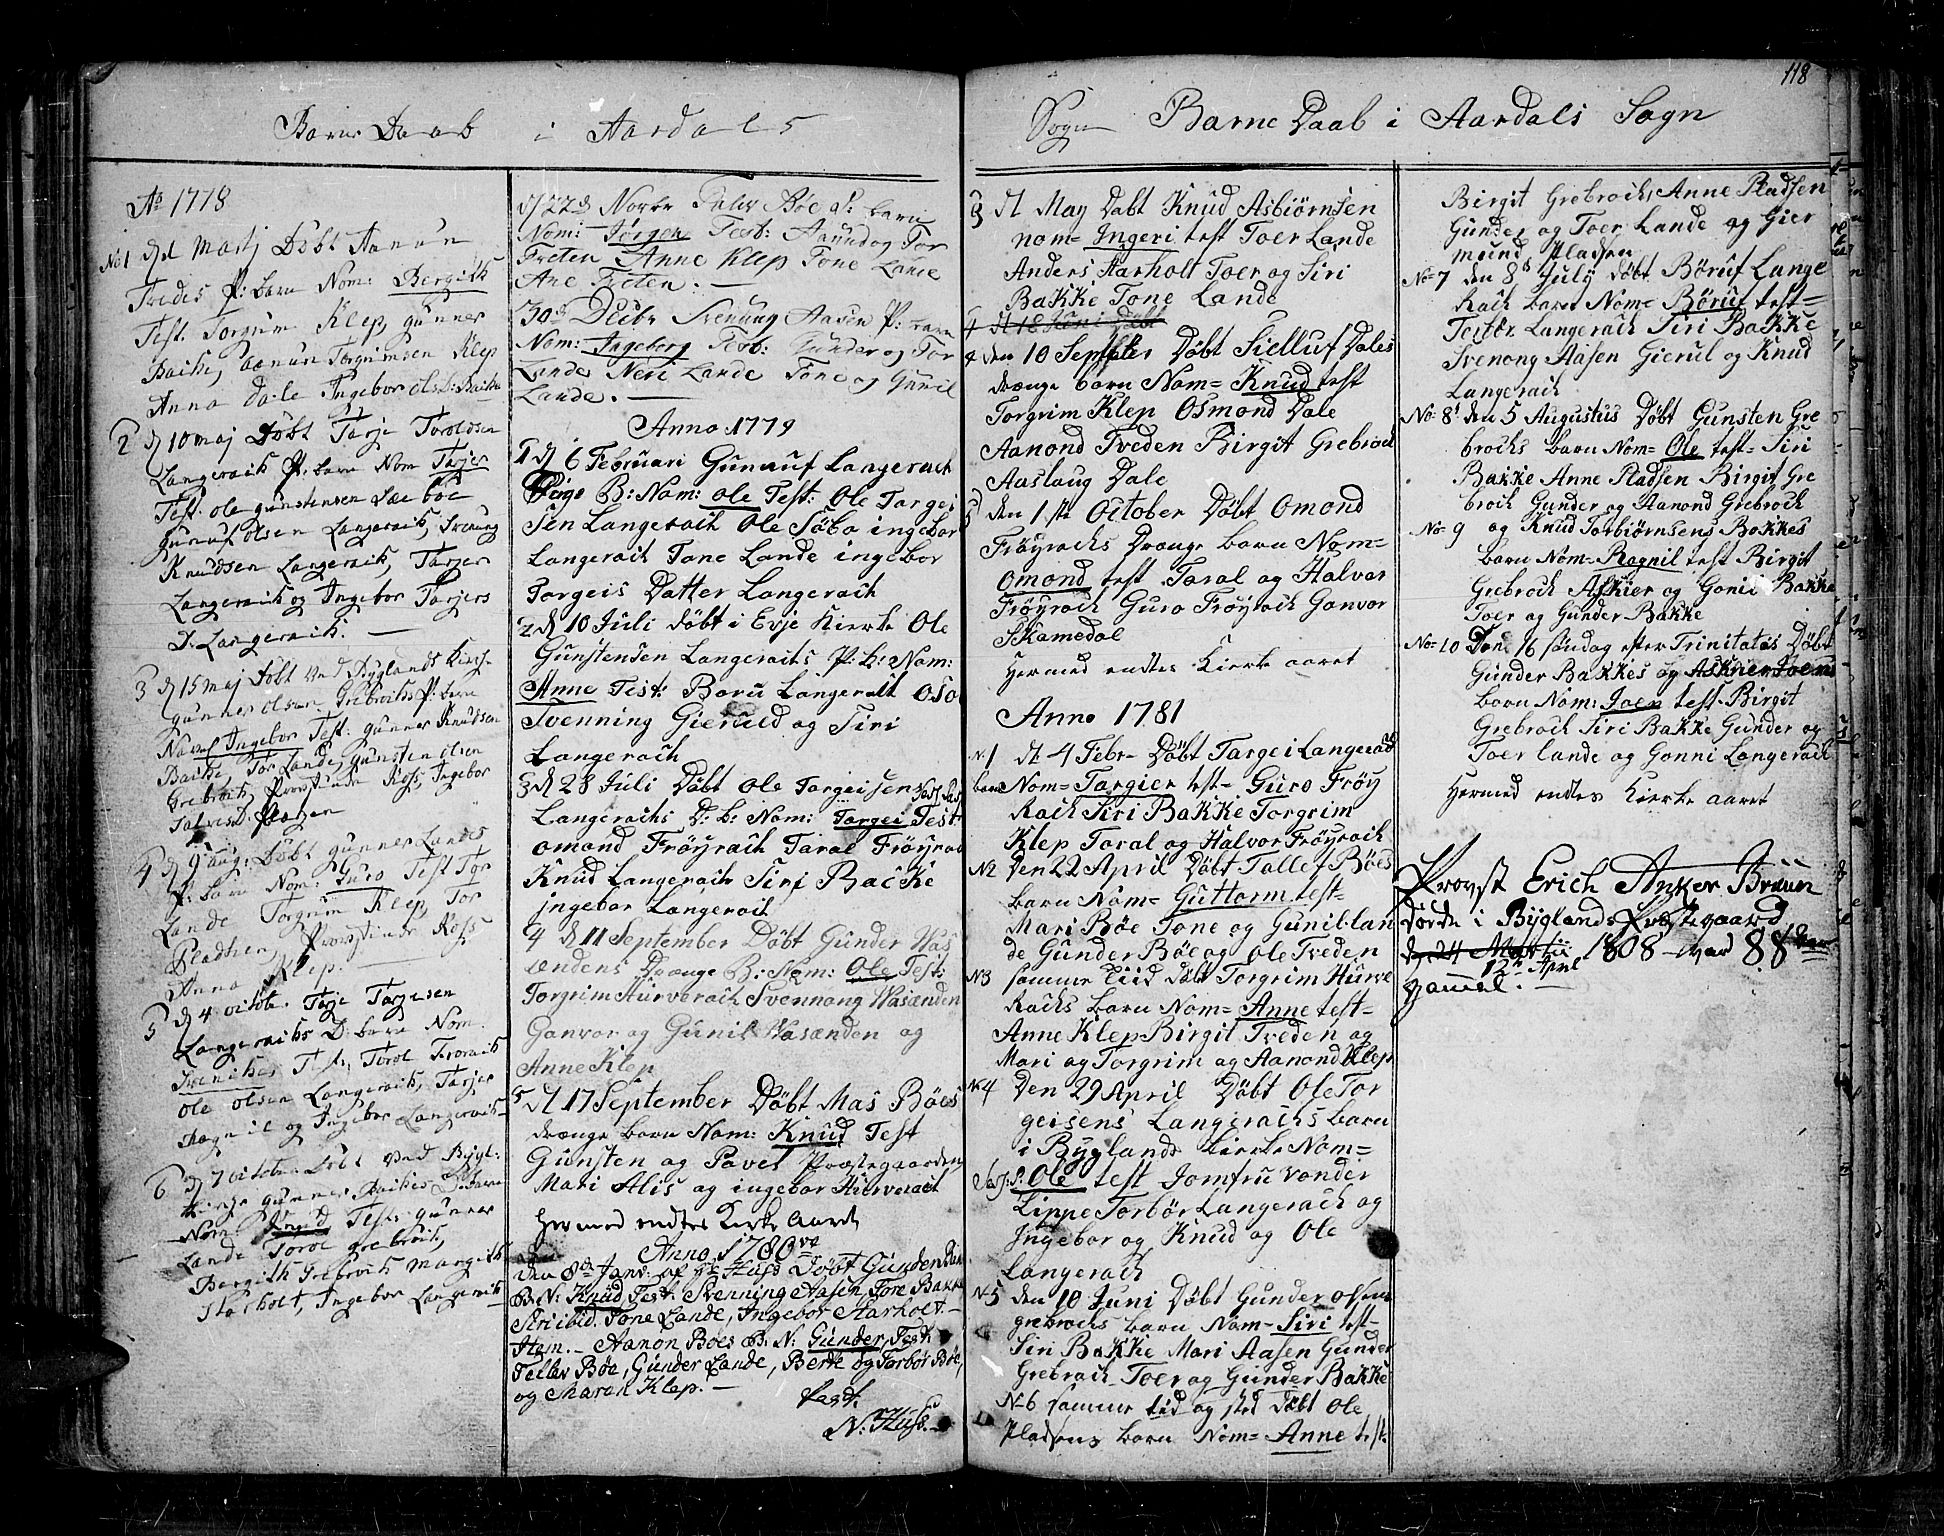 Barne Daab i Aardals Sogn
Ao 1778
No 1 d. 1 Martj Döbt Aanun
Tvedes P: barn Nom: Bergith
Test. Torgrum Klep, gunner
Bakke, Aanun Torgrumsen Klep
Anna Dale Ingebor Bakke
2 d 10 maj Döbt Tarje Toroldsen
Langeraks P: barn Nom Tarjer
Test: ole gunstensen
gunuf olsen Langerack, Svenung
Knudsen Langerack, Tarjer
Langerack og Ingebor Tarjers
D. Langerack.
3 d 15 maj Döbt ved Byglands Kirke
gunner olsen Grebroks P: barn
Navnl Ingebor Test: gunner Knudsen
Bakke, Tor Lande, gunsten olsen
Grebrok, Provstinde Koss, Ingebor
4 d 9 aug: Döbt gunner Landes
P: barn Nom: Guro Test Tor
Lande Torgrum Klep, Tor
Pladsen, Provstinde Koss
Anna Klep.
5 d 4 octobr. Tarje Tarjesen
Langeraks D: barn Nom.
Test: Torol
ole olsen Langerack, Tarjer
og Ingebor Langerack
6 d 7 octobr. Döbt ved Bygl:
Kirke gunner Backes D: barn
Nom: Knud Test: gunner
Lande Torol grebrok,
Bergith Grebrok Margith
Starholt, Ingebor Langerack
d 22d Novbr Tellev Böe P: barn
Nom: Jörgen Test: Aanund og Tor
Treten Anne Klep Tone Lande
Ane Treten. —
30d Decbr Svenung Aasen P: barn
Nom: Ingeborg Test: Gunder og Tor
Landes Neri Lande Tone og Gunil
Lande. —
Anno 1779
1 d 6 Februari Gunnuf Langerach
Pige B: Nom: Ole Test: Ole Targei
sen Langerach Ole Söbo ingebor
Langerach Tone Lande ingebor
Torgeis Datter Langerach
2 d 10 Juli döbt i Evje Kierke Ole
Gunstensen Langerachs P: b: Nom:
Anne Test: Boru Langerach Oso
Svenning Gieruld og Siri
Langerach
3 d 28 Juli Döbt Ole Torgeisen
Langerachs D: b: Nom: Targei Test:
omond Fröyrach Taral Fröyrac
Knud Langerach Siri Backe
jngebor Langerach
4 d 11 September Döbt Gunder Was
endens Drænge B: Nom: Ole Test:
Torgrim Hurverach Svennong Wasænden
Ganvor og Gunil Wasænden og
Anne Klep
5 d 17 September Döbt Mas Böes
drænge barn Nom: Knud Test
Gunsten og Pavel Præstegaarden
Mari Alis og ingebor Hurverach
hermed endtes Kirke Aaret
Anno 1780ve
den 8de Janv: af Hr Huss Döbt Gunden
B: N: Knud Test: Svenning Aasen Tore Bakke
Siri ibid. Tone Lande, Ingebor Starholt. —
Item. — Aanon Boes B: N: Gunder, Test:
Tellev Böe, Gunder Lande, Berte og Torbör Böe,
og Maren Klep. —
test.
N: Huss. —
118
Barne Daab i Aardals Sogn
3 d 1 May Döbt Knud Asbiörnsen
nom= Jngeri test Toer Lande
Anders Harholt Toer og Siri
Bakke Tone Lande
4 d 18 Juni Döbt
4 den 10 September Döbt Sielluf Dales
drænge barn Nom= Knud test
Torgrim Klep Osmond Dale
Aanond Tveden Birgit Grebroch
Aaslaug Dale
5 den 1ste October Döbt Omond
Fröyrachs Drænge barn Nom=
Omond test Taral og Halvor
Fröyrach Guro Fröyrach Ganvor
Skamedal
Hermed endtes Kierke aaret
Anno 1781
N. 1 d 4 Febr– Döbt Targei Langerach
barn Nom= Targier test– Guro Fröy
Rach Siri Bakke Torgrim
Klep Toral og Halvor Fröyrach
N2 Den 22 April Döbt Tallef Böes
barn Nom= Guttorm test–
Mari Böe Tone og Gunil lan
de Gunder Böe og Ole Tveden
N3 samme tiid Döbt Torgrim Hurve
Rachs barn Nom= Anne test–
Anne Klep Birgit Tveden og
Mari og Torgrim og Aanond Klep
N4 Den 29 April Döbt Ole Tor
geisens Langerachs barn
i Byglands Kierke Nom=
Ole test Jomfru vonder
Lippe Torbör Langerach og
Jngebor og Knud og Ole
Langerach
N5 den 10 Juni Döbt Gunder olsens
grebrochs barn Nom= Siri test–
Siri Bakke Mari Aasen Gunder
Grebroch Toer og Gunder Bakke
N–6 samme tid og sted Döbt Ole
Pladsens barn Nom= Anne test–
Birgit Grebrochs Anne Pladsen
Gunder og Toer Lande og Gier
mund Pladsen
No= 7 den 8de July Döbt Böruf Lange
Rach barn Nom= Böruf test=
Torbör Langerach Siri Bakke
Svenong Aasen Gierul og Knud
Langerach
No= 8 den 5 Augustus Döbt Gunsten Gre
brochs barn Nom= Ole test– Siri
Bakke Anne Pladsen Birgit Gre
broch Gunder og Aanond Grebroch
No= 9 og Knud Torbiörnsens Bakkes
barn Nom= Ragnil test Birgit
Grebroch Askier og Gonil Bakke
Toer og Gunder Bakke
No= 10 Den 16 söndag efter Trinitatis Döbt
Gunder Bakkes
barn Nom: Joen test– Birgit
Grebroch Siri Bakke Gunder og
Toer lande og Gonni Langerach
Hermed endtes Kierke aaret
Provst Erich Anker Brüun
döde i Byglands Præstegaard
d. 24 Martii 1808 – var 88 Aar
12te April
gammel.